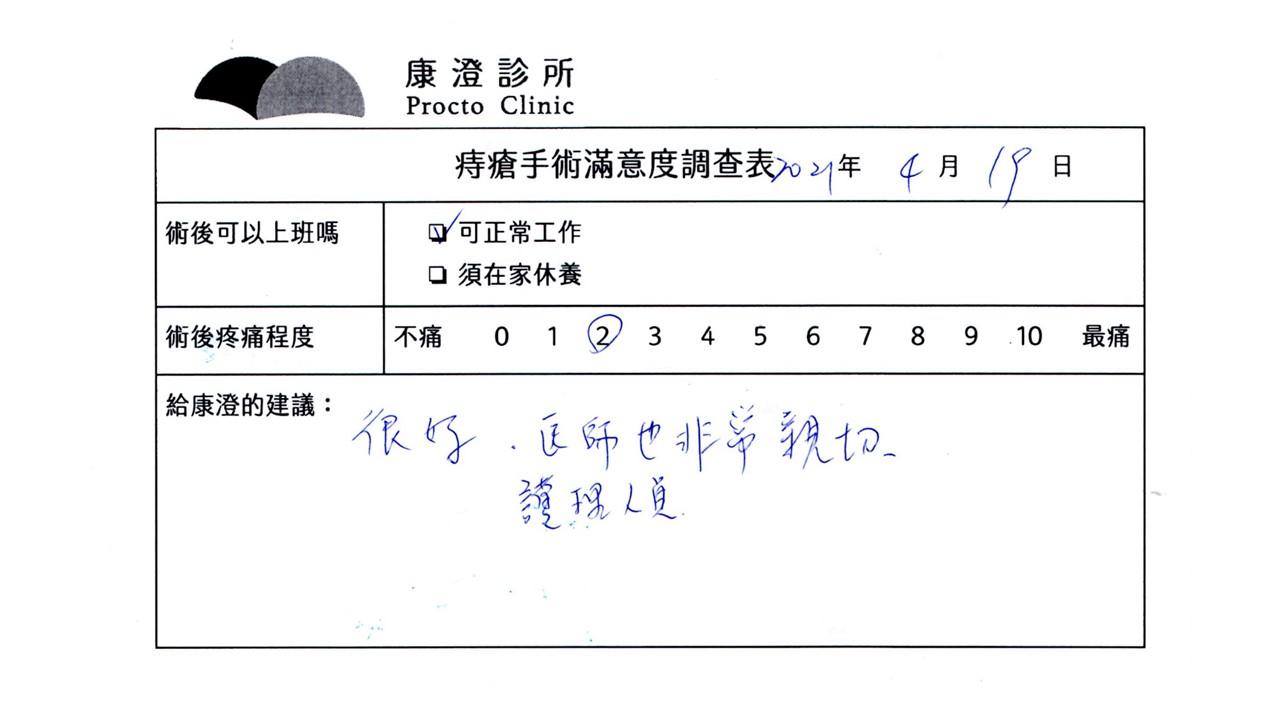 康澄診所
Procto Clinic
痔瘡手術滿意度調查表 2021年 4月 19日
術後可以上班嗎
可正常工作
須在家休養
術後疼痛程度
不痛 0 1 2 3 4 5 6 7 8 9 10 最痛
給康澄的建議：
很好．医師也非常親切、
護理人員